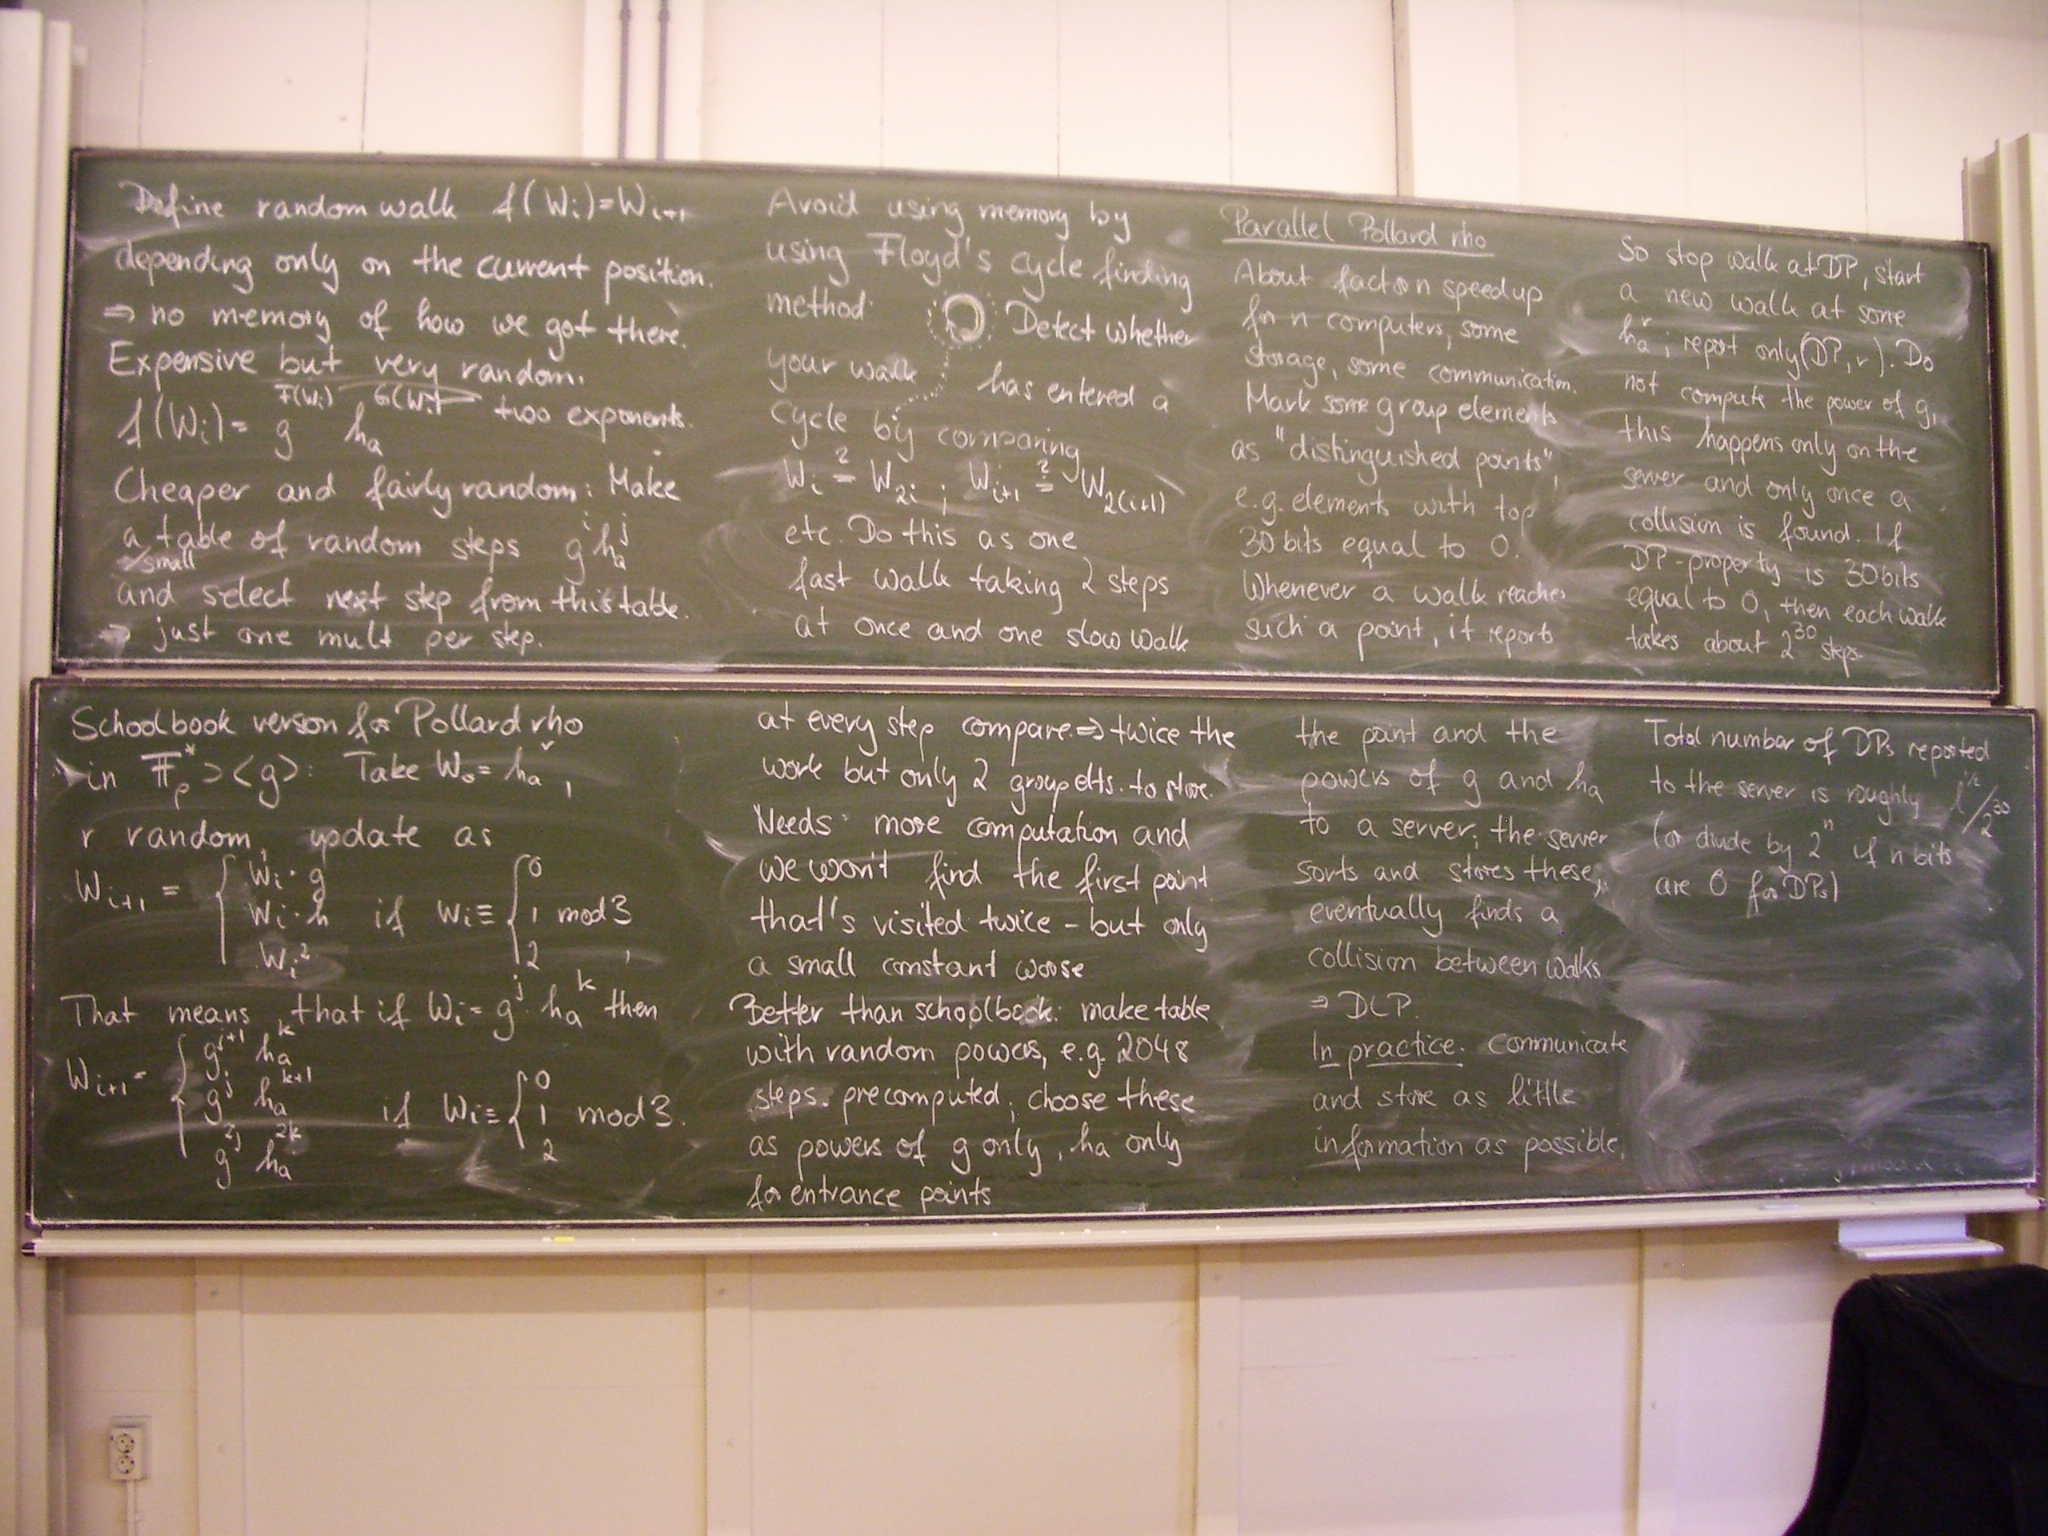 Define random walk f(Wi)=Wi+1
depending only on the current position.
⇒ no memory of how we got there.
Expensive but very random.
f(Wi)= g^F(Wi) ha^G(Wi) two exponents.
Cheaper and fairly random: Make
a small table of random steps g^i ha^j
and select next step from this table.
⇒ just one mult per step.
Schoolbook version for Pollard rho
in F*p ⊃ <g>: Take W0 = ha^r,
r random, update as
Wi+1 = { Wi·g
Wi·h if Wi ≡ { 0 1 2 mod 3,
Wi^2
That means that if Wi = g^j ha^k then
Wi+1 = { g^j+1 ha^k
g^j ha^k+1 if Wi ≡ { 0 1 2 mod 3.
g^2j ha^2k
Avoid using memory by
using Floyd's cycle finding
method. Detect whether
your walk has entered a
cycle by comparing
Wi ?= W2i, Wi+1 ?= W2(i+1)
etc. Do this as one
fast walk taking 2 steps
at once and one slow walk
at every step compare. ⇒ twice the
work but only 2 group elts. to store.
Needs more computation and
we won't find the first point
that's visited twice – but only
a small constant worse
Better than schoolbook: make table
with random powers, e.g. 2048
steps. precomputed; choose these
as powers of g only, ha only
for entrance points
Parallel Pollard rho
About factor n speedup
for n computers, some
storage, some communication.
Mark some group elements
as "distinguished points",
e.g. elements with top
30 bits equal to 0.
Whenever a walk reaches
such a point, it reports
the point and the
powers of g and ha
to a server; the server
sorts and stores these,
eventually finds a
collision between walks
⇒ DLP.
In practice. communicate
and store as little
information as possible.
So stop walk at DP, start
a new walk at some
ha^r; report only (DP, r). Do
not compute the power of g,
this happens only on the
server and only once a
collision is found. If
DP-property is 30 bits
equal to 0, then each walk
takes about 2^30 steps.
Total number of DPs reported
to the server is roughly l^1/2/2^30
(or divide by 2^n if n bits
are 0 for DPs)